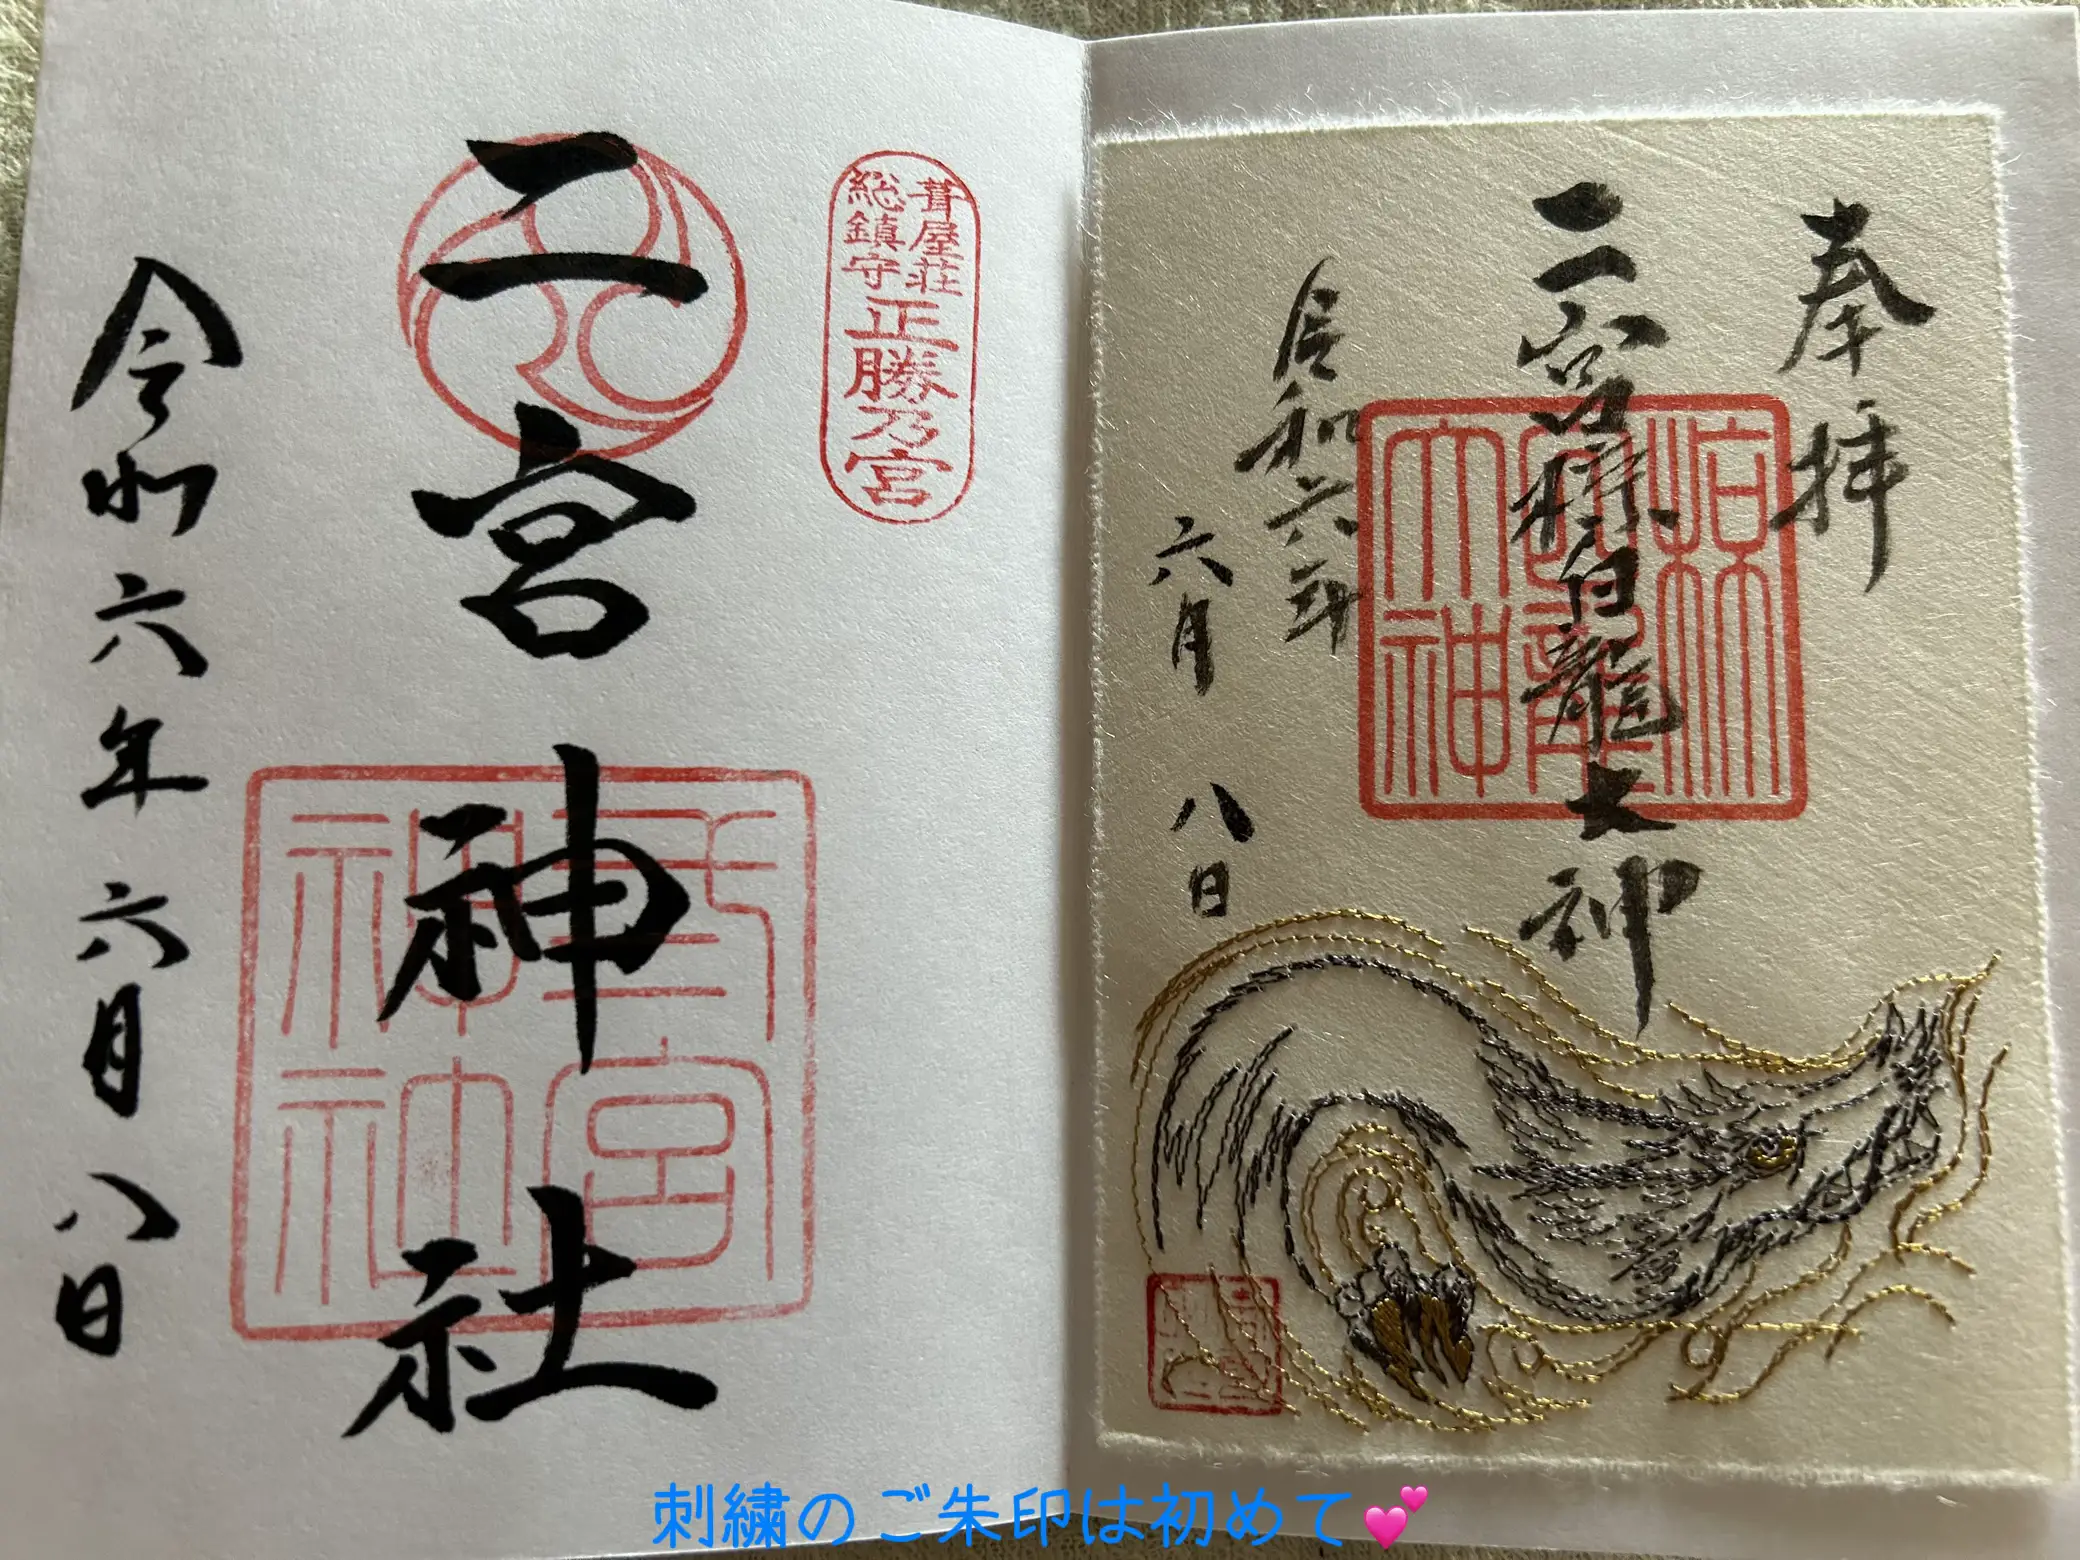 奉拝
二宮椋白龍大神
令和六年
六月 八日
椋白龍大神
葺屋荘
総鎮守
正勝乃宮
二宮神社
二宮神社
令和六年六月八日
刺繍のご朱印は初めて💕